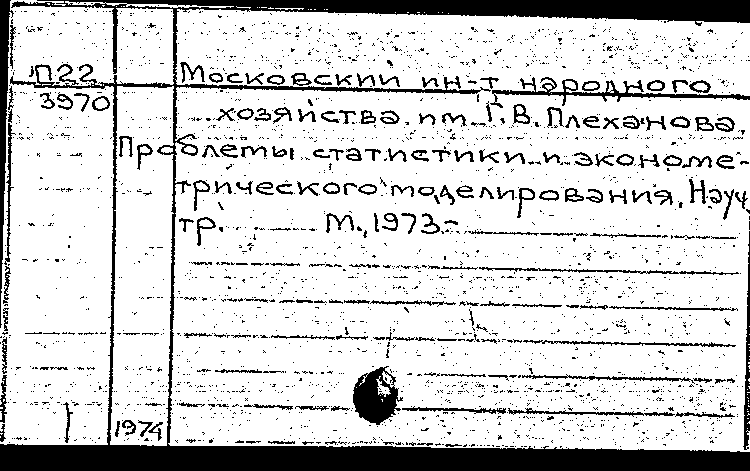 П22
3970
Московский ин-т народного
хозяйства им. Г. В. Плеханова.
Проблемы статистики и экономе-
трического моделирования. Науч.
тр. М., 1973-
1974